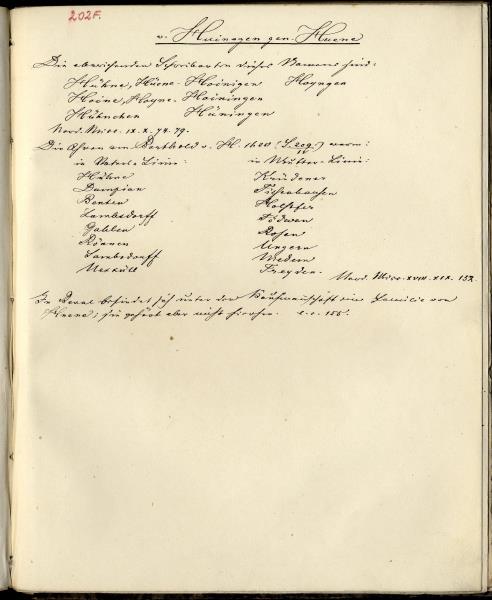 202F.
v. Huinngen gen. Huene
Die abweichenden Schreibarten dieses Namens sind:
Hühne, Hüene - Hoinigen Hoyngen
Hoine, Hoyne - Hoiningen
Hühnchen Hüningen
Nord. Misc. IX. X. 74. 79.
Die Ahnen von Berthold v. H. 1620 (S. 209) waren:
in Vaters-Linie: in Mutter-Linie:
Hühne Krüdener
Dumpian Tiesenhausen
Benten Holtfer
Lambsdorff Tödwen
Gahlen Rosen
Rönnen Ungern
Lambsdorff Medem
Uexküll Treyden.
Nord. Misc. XVIII. XIX. 152.
In Reval befindet sich unter der Kaufmannschaft eine Familie von
Huene; sie gehört aber nicht hierher. l. c. 155.